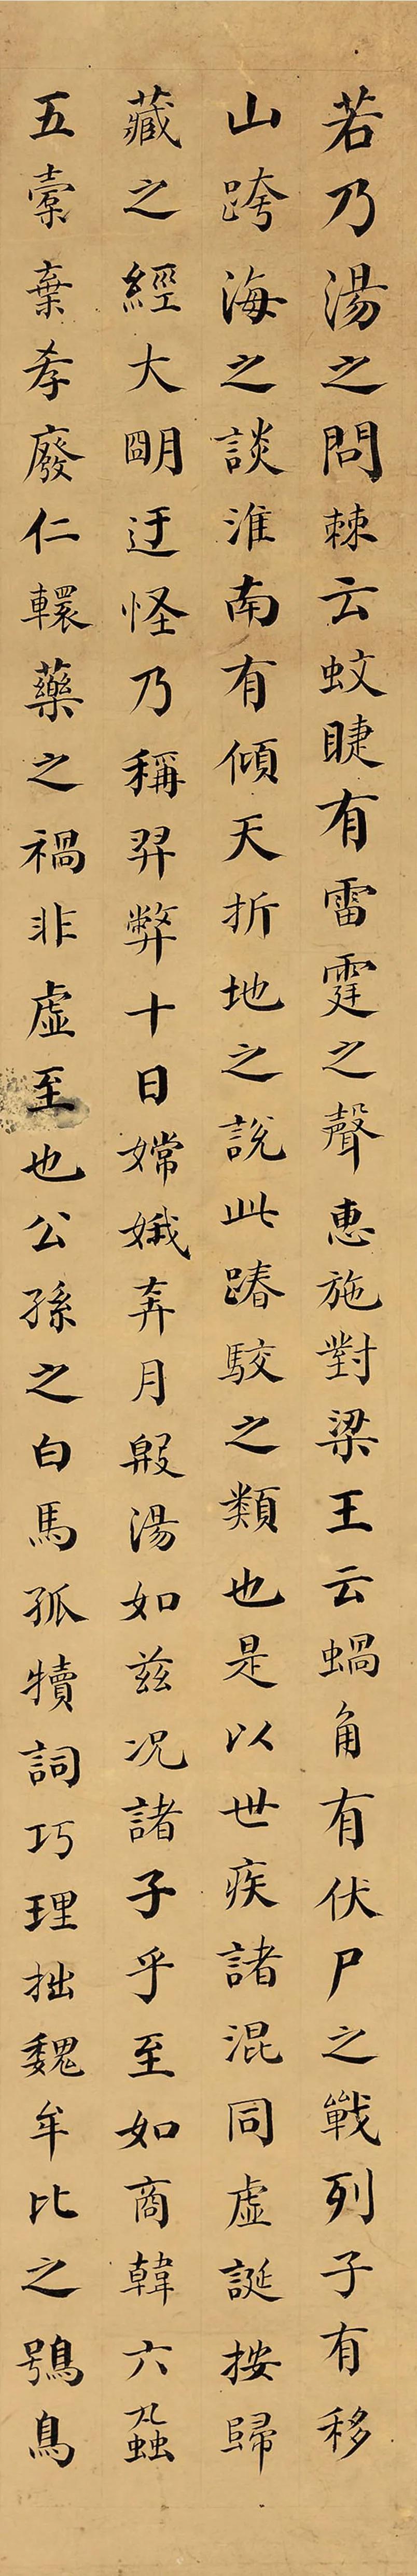 若乃湯之問棘云蚊睫有雷霆之聲惠施對梁王云蝸角有伏尸之戰列子有移
山跨海之談淮南有傾天折地之說此踳駮之類也是以世疾諸混同虛誕按歸
藏之經大明迂怪乃稱羿弊十日嫦娥奔月殷湯如茲況諸子乎至如商韓六蝨
五蠹棄孝廢仁轘藥之禍非虛至也公孫之白馬孤犢詞巧理拙魏牟比之鴞鳥